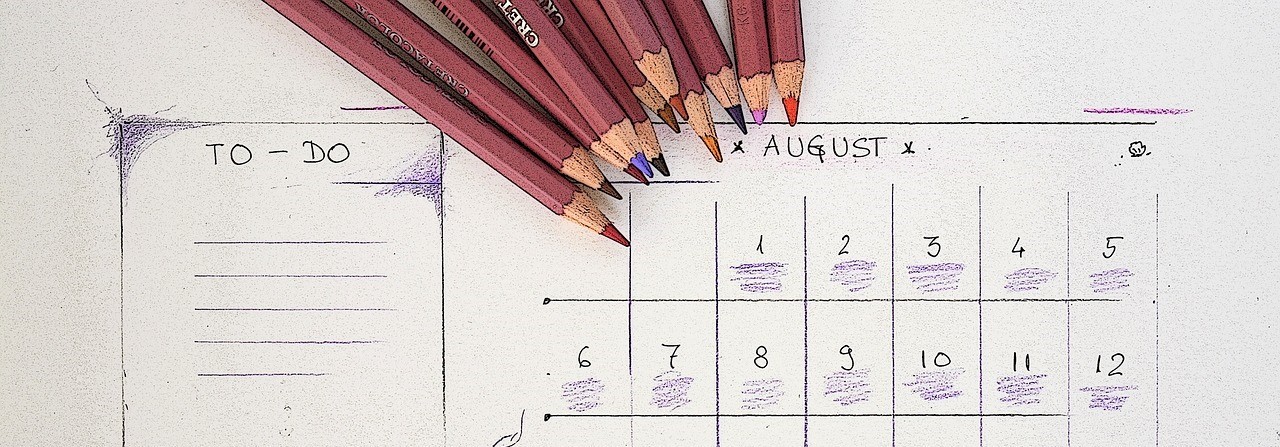 CRETACOLOR
CRET
TO - DO
* AUGUST *
1 2 3 4 5
6 7 8 9 10 11 12